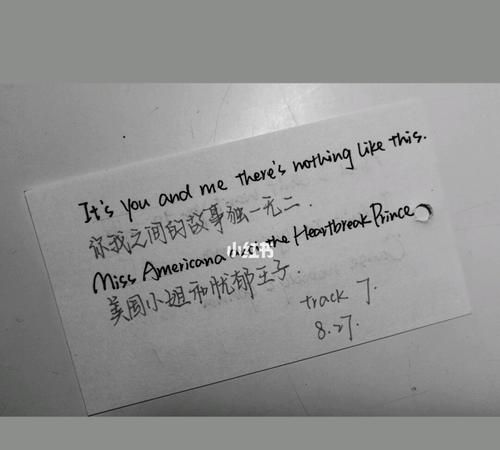 It's you and me there's nothing like this.
你我之间的故事独一无二.
Miss Americana the Heartbreak Prince
小红书
美国小姐和忧郁王子.
track 7.
8.27.